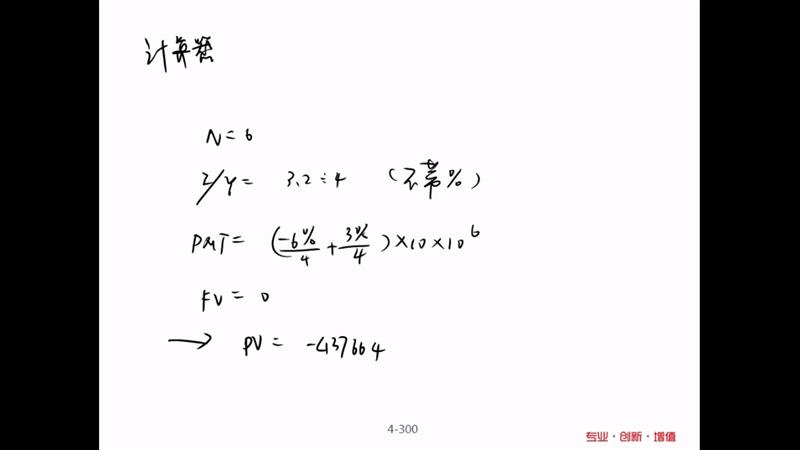 计算器
N = 6
I/Y = 3.2 ÷ 4 (不带%)
PMT = (-6%/4 + 3%/4) × 10 × 10^6
FV = 0
→ PV = -437664
4-300
专业·创新·增值